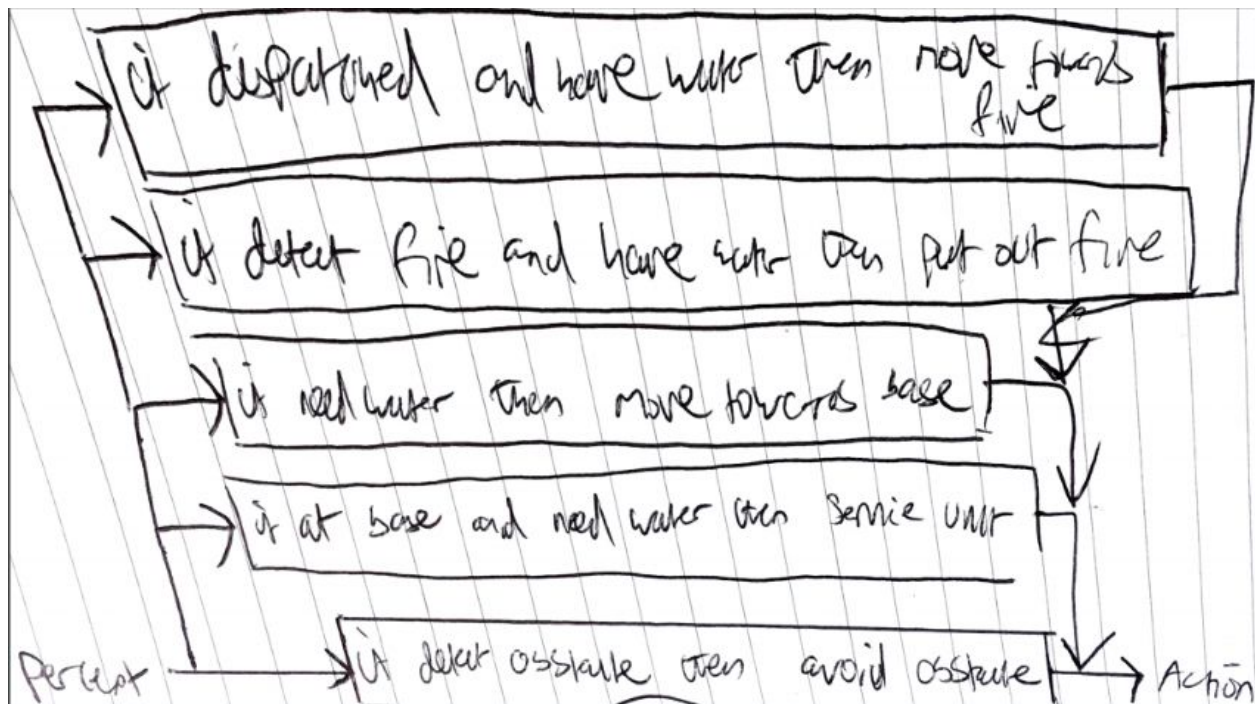 if dispatched and have water then move towards
fire
if detect fire and have water then put out fire
if need water then move towards base
if at base and need water then service unit
if detect obsstacle then avoid obsstacle
Percept
Action